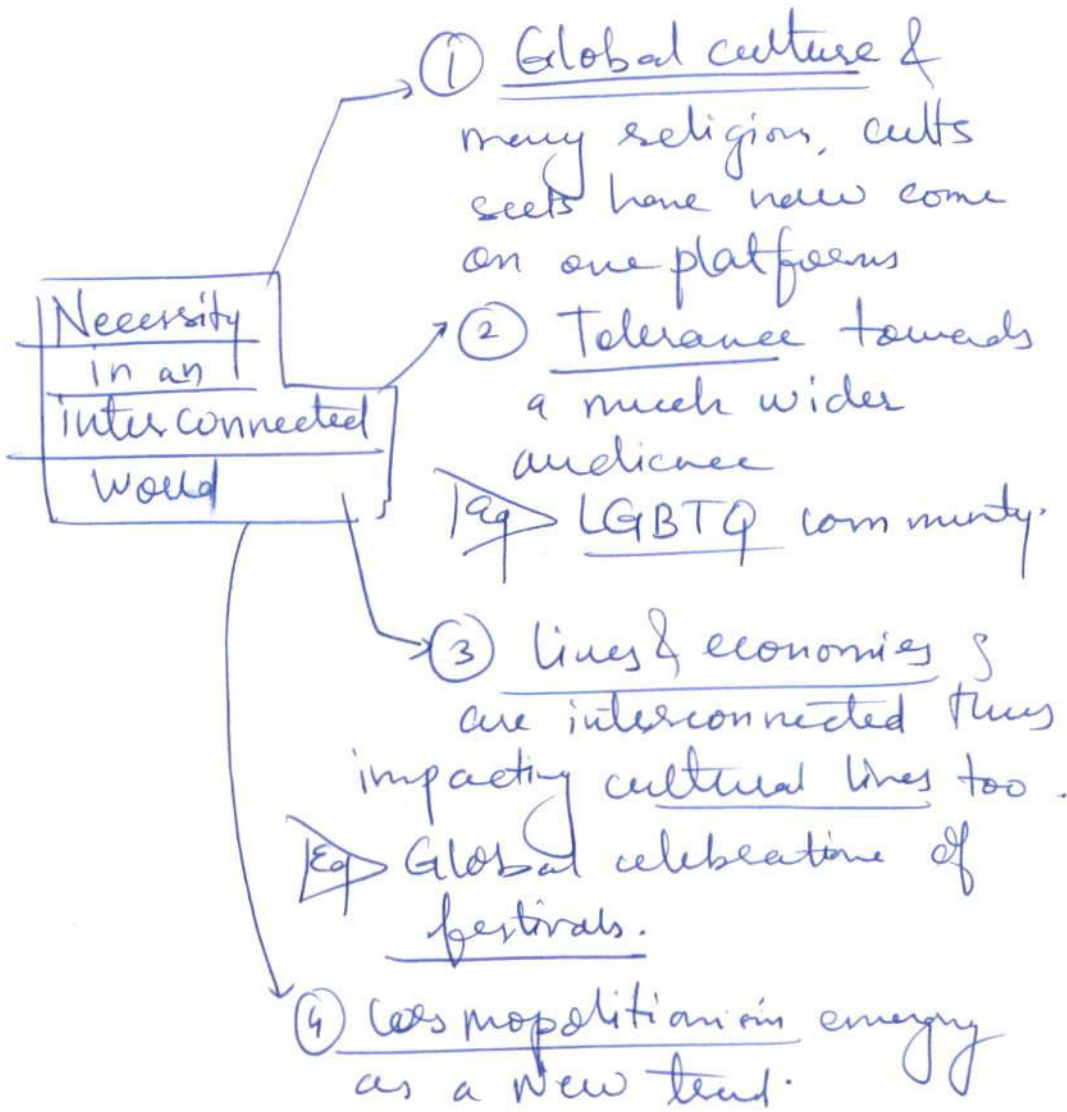 Necessity
in an
interconnected
World
① Global culture &
many religion, cults
sects have now come
on one platforms
② Tolerance towards
a much wider
audience
Eg LGBTQ community.
③ lives & economies
are interconnected thus
impacting cultural lives too.
Eg Global celebration of
festivals.
④ Cosmopolitianism emerging
as a New trend.